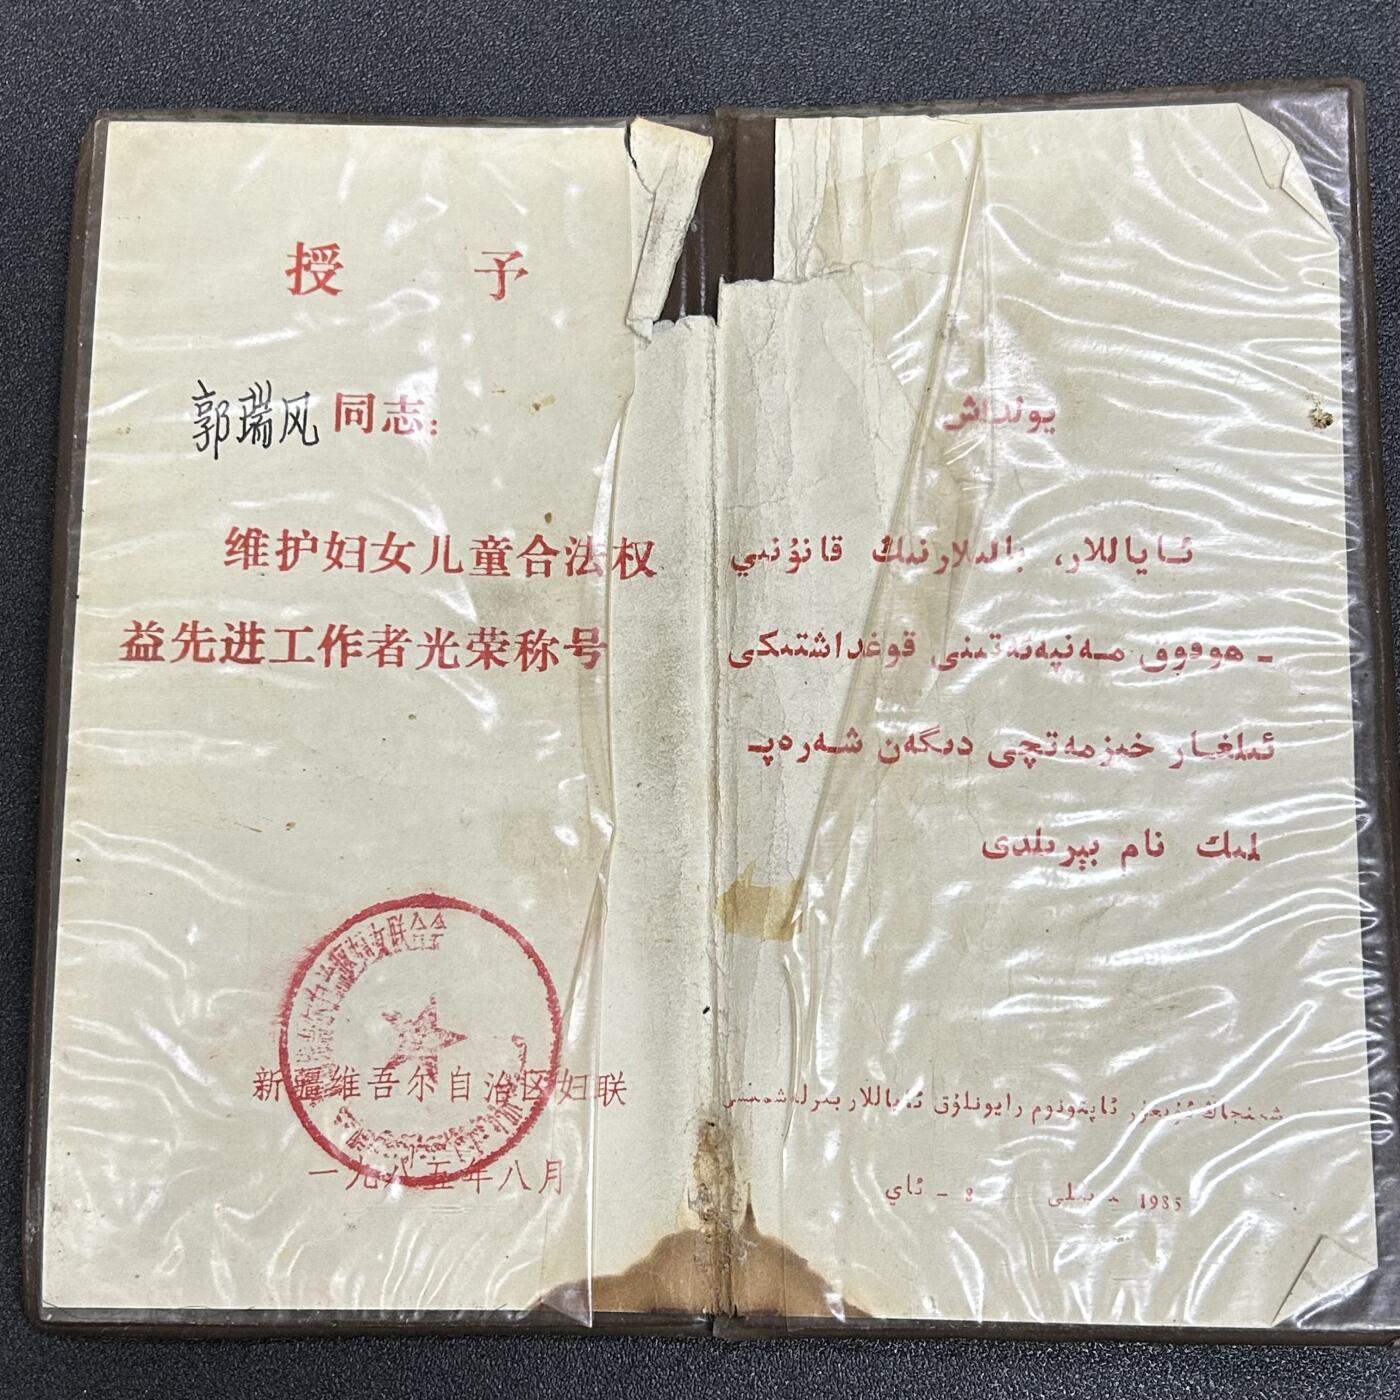 授 予
郭瑞风同志：
维护妇女儿童合法权
益先进工作者光荣称号
新疆维吾尔自治区妇联
一九八五年八月
يولداش
ئاياللار، بالىلارنىڭ قانۇنىي
ـ هوقۇق مەنپەئەتىنى قوغداشتىكى
ئىلغار خىزمەتچى دىگەن شەرەپـ
لىك نام بېرىلدى
شىنجاڭ ئۇيغۇر ئاپتونوم رايونلۇق ئاياللار بىرلەشمىسى
1985 - يىلى 8 - ئاي